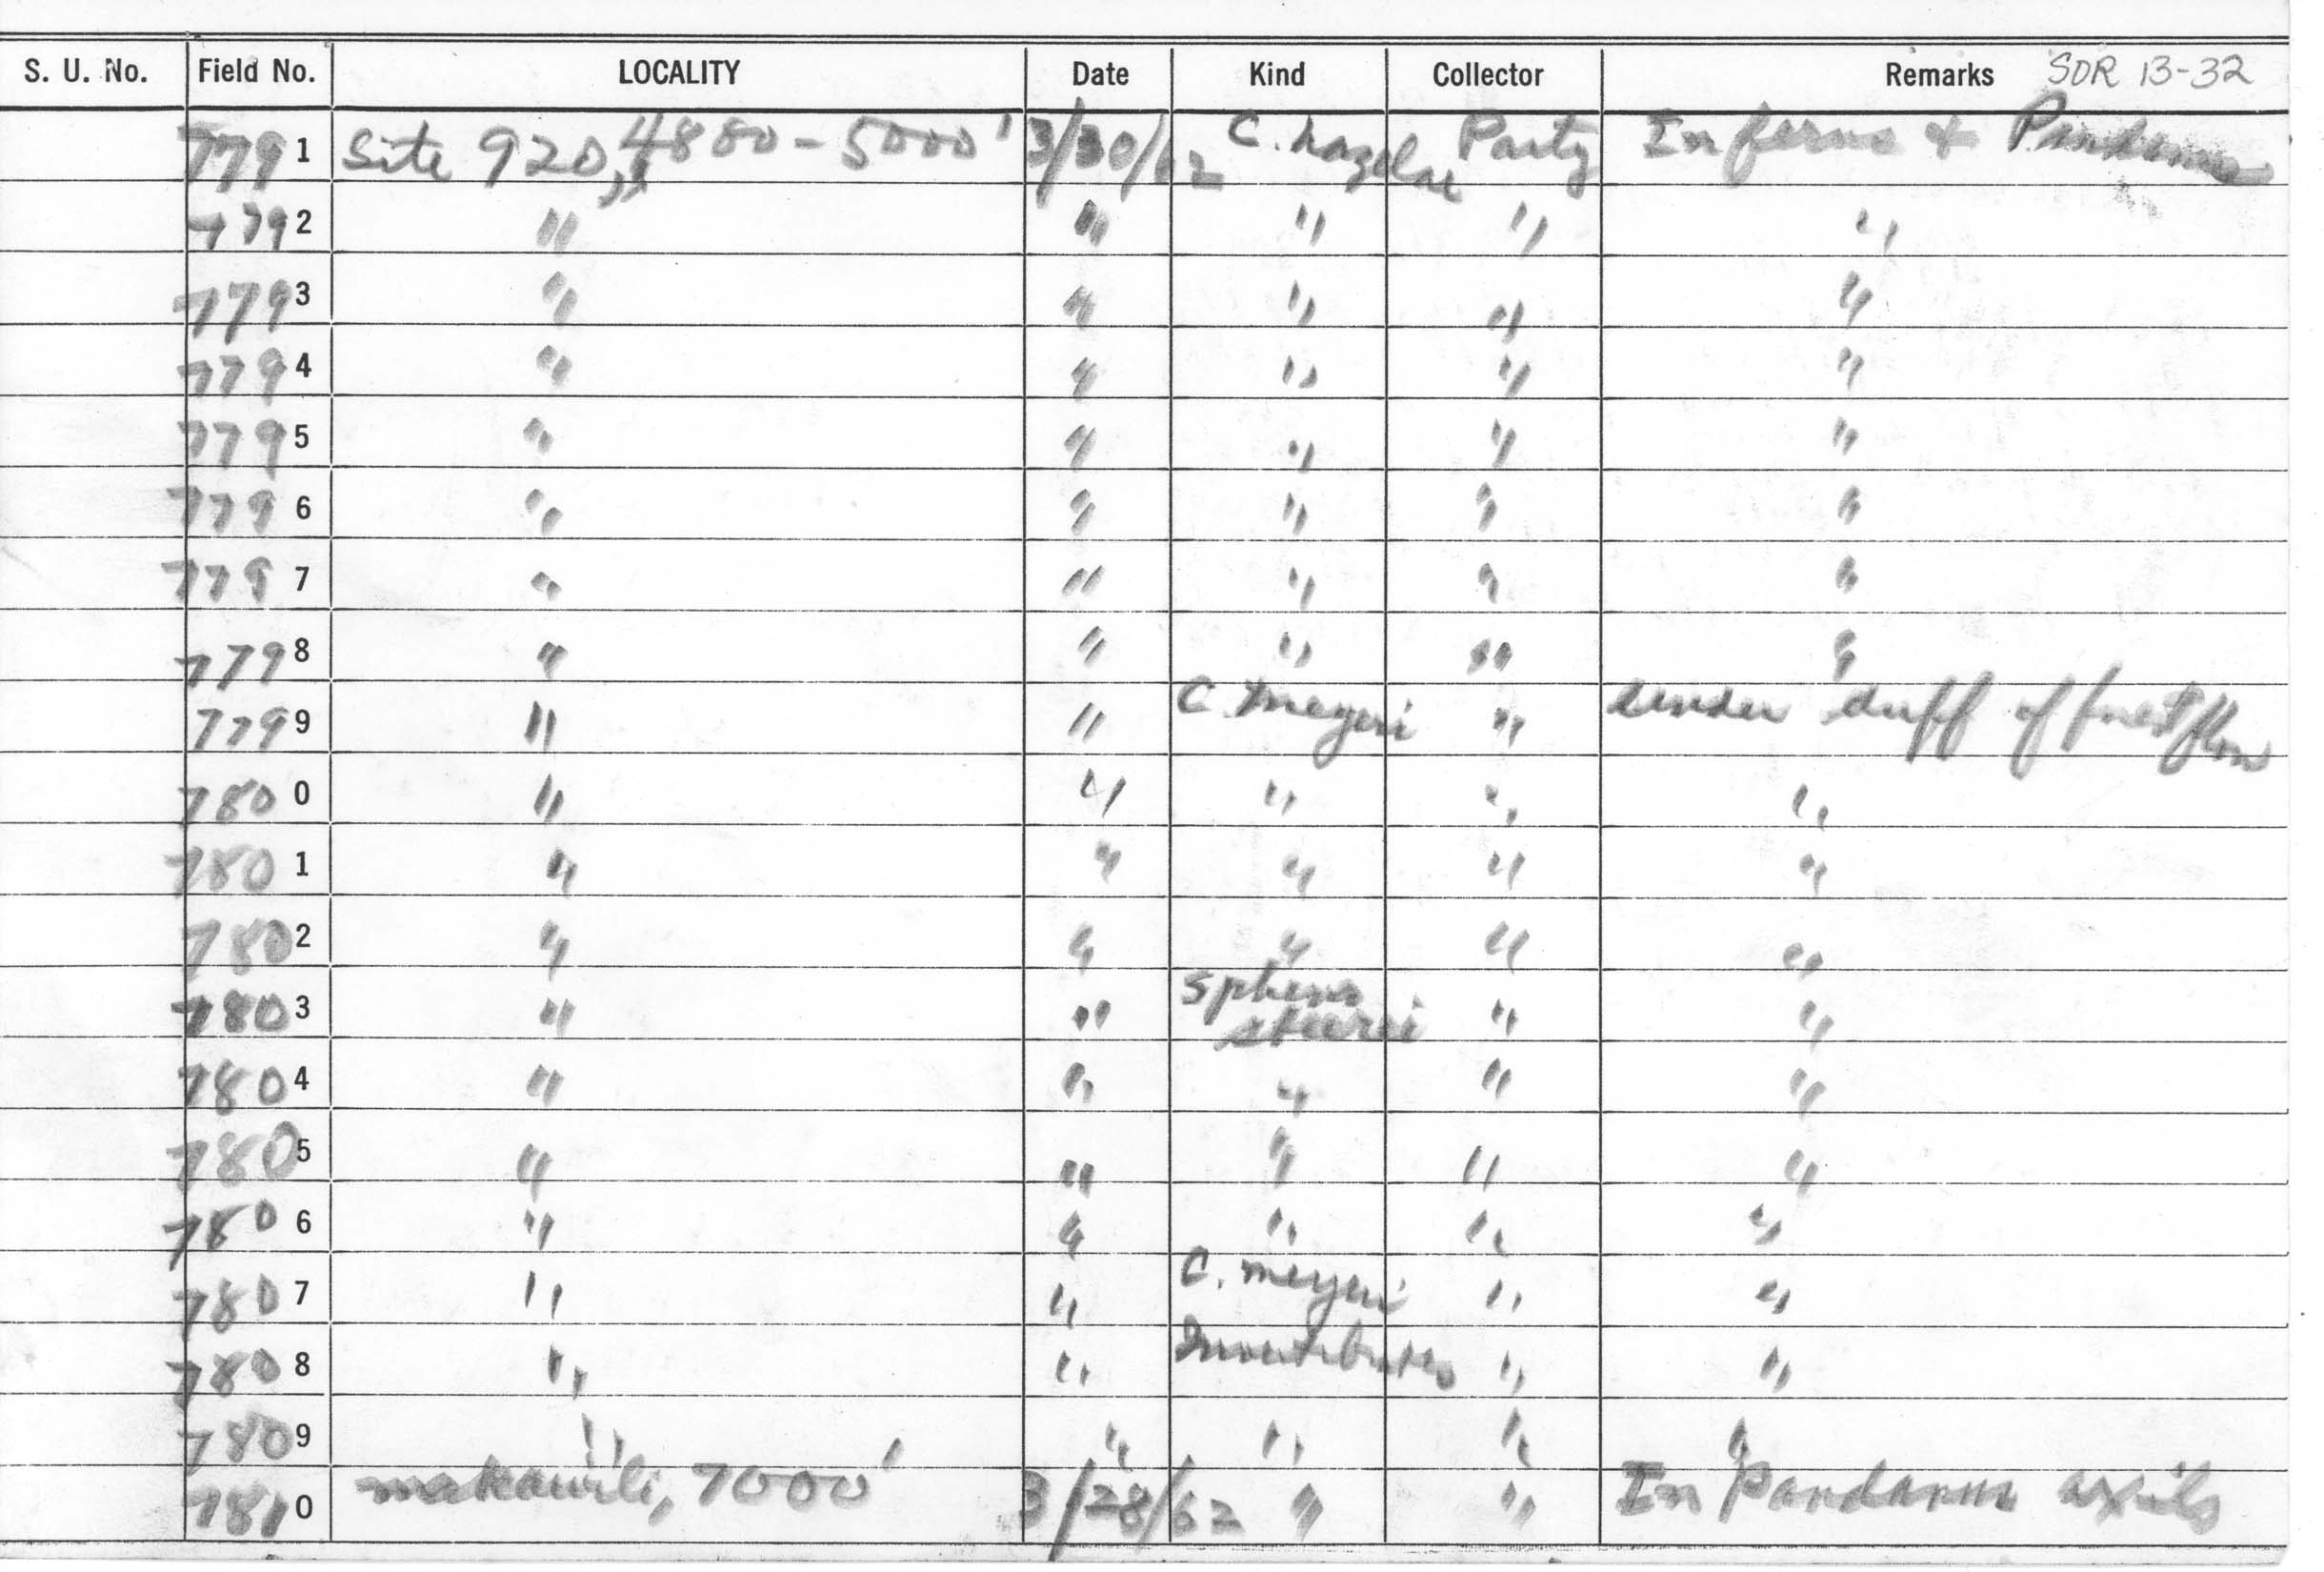 S. U. No. Field No. LOCALITY Date Kind Collector Remarks SOR 13-32
7791 Site 920, 4800-5000' 3/30/62 C. hazelae Party In ferns & Pandanus
7792 " " " " "
7793 " " " " "
7794 " " " " "
7795 " " " " "
7796 " " " " "
7797 " " " " "
7798 " " " " "
7799 " " C. meyeri " under duff of forest floor
7800 " " " " "
7801 " " " " "
7802 " " " " "
7803 " " Spheno steerei " "
7804 " " " " "
7805 " " " " "
7806 " " " " "
7807 " " C. meyeri " "
7808 " " Invertebrates " "
7809 " " " " "
7810 makawili, 7000' 3/28/62 " " In Pandanus axils